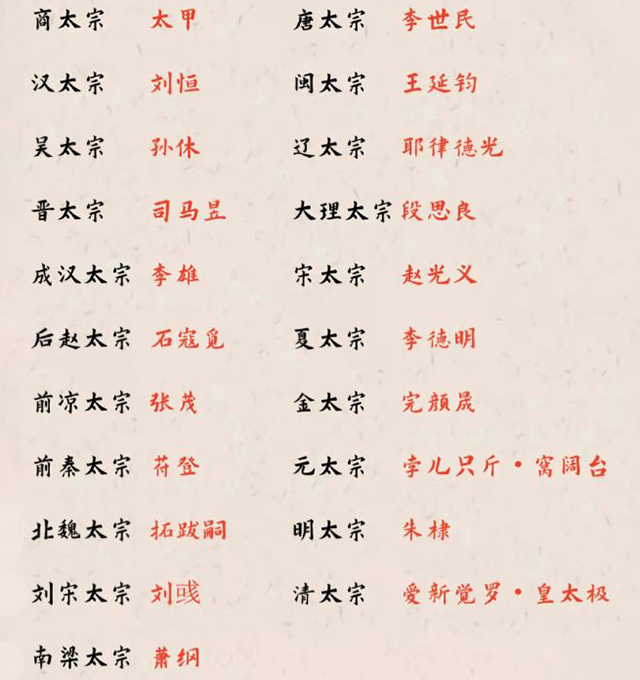 商太宗 太甲 唐太宗 李世民
汉太宗 刘恒 闽太宗 王延钧
吴太宗 孙休 辽太宗 耶律德光
晋太宗 司马昱 大理太宗 段思良
成汉太宗 李雄 宋太宗 赵光义
后赵太宗 石寇觅 夏太宗 李德明
前凉太宗 张茂 金太宗 完颜晟
前秦太宗 苻登 元太宗 孛儿只斤·窝阔台
北魏太宗 拓跋嗣 明太宗 朱棣
刘宋太宗 刘彧 清太宗 爱新觉罗·皇太极
南梁太宗 萧纲